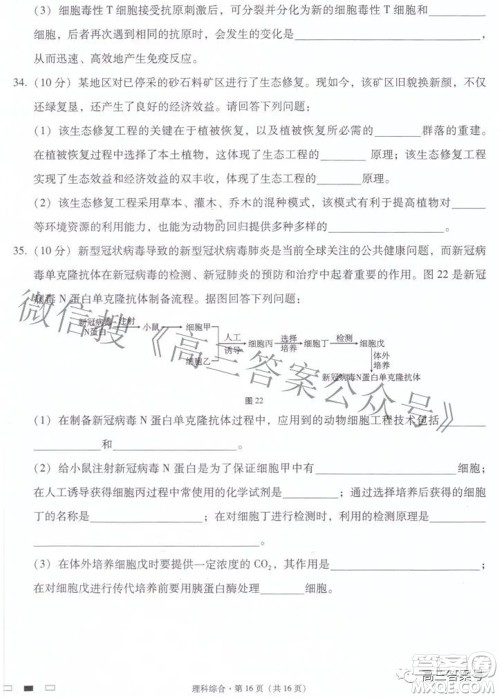 （3）细胞毒性 T 细胞接受抗原刺激后，可分裂并分化为新的细胞毒性 T 细胞和________
细胞，后者再次遇到相同的抗原时，会发生的变化是________________________，
从而迅速、高效地产生免疫反应。
34.（10 分）某地区对已停采的砂石料矿区进行了生态修复。现如今，该矿区旧貌换新颜，不仅
还绿复垦，还产生了良好的经济效益。请回答下列问题：
（1）该生态修复工程的关键在于植被恢复，以及植被恢复所必需的________群落的重建。
在植被恢复过程中选择了本土植物，这体现了生态工程的________原理；该生态工程
实现了生态效益和经济效益的双丰收，体现了生态工程的________原理。
（2）该生态修复工程采用草本、灌木、乔木的混种模式，该模式有利于提高植物对________
等环境资源的利用能力，也能为动物的回归提供多种多样的________________。
35.（10 分）新型冠状病毒导致的新型冠状病毒肺炎是当前全球关注的公共健康问题，而新冠病
毒单克隆抗体在新冠病毒的检测、新冠肺炎的预防和治疗中起着重要的作用。图 22 是新冠
病毒 N 蛋白单克隆抗体制备流程。据图回答下列问题：
新冠病毒 N蛋白 注射 小鼠 细胞甲 细胞乙 人工诱导 细胞丙 选择培养 细胞丁 检测 细胞戊
体外培养
新冠病毒N蛋白单克隆抗体
图 22
（1）在制备新冠病毒 N 蛋白单克隆抗体过程中，应用到的动物细胞工程技术包括________
________和________________。
（2）给小鼠注射新冠病毒 N 蛋白是为了保证细胞甲中有________________细胞；
在人工诱导获得细胞丙过程中常使用的化学试剂是________；通过选择培养后获得的细胞
丁的名称是________________；在对细胞丁进行检测时，利用的检测原理是________
________________。
（3）在体外培养细胞戊时要提供一定浓度的 CO₂，其作用是________________；在对
细胞戊进行传代培养前要用胰蛋白酶处理________细胞。
理科综合·第 16 页（共 16 页）
微信搜《高三答案公众号》
高三答案号